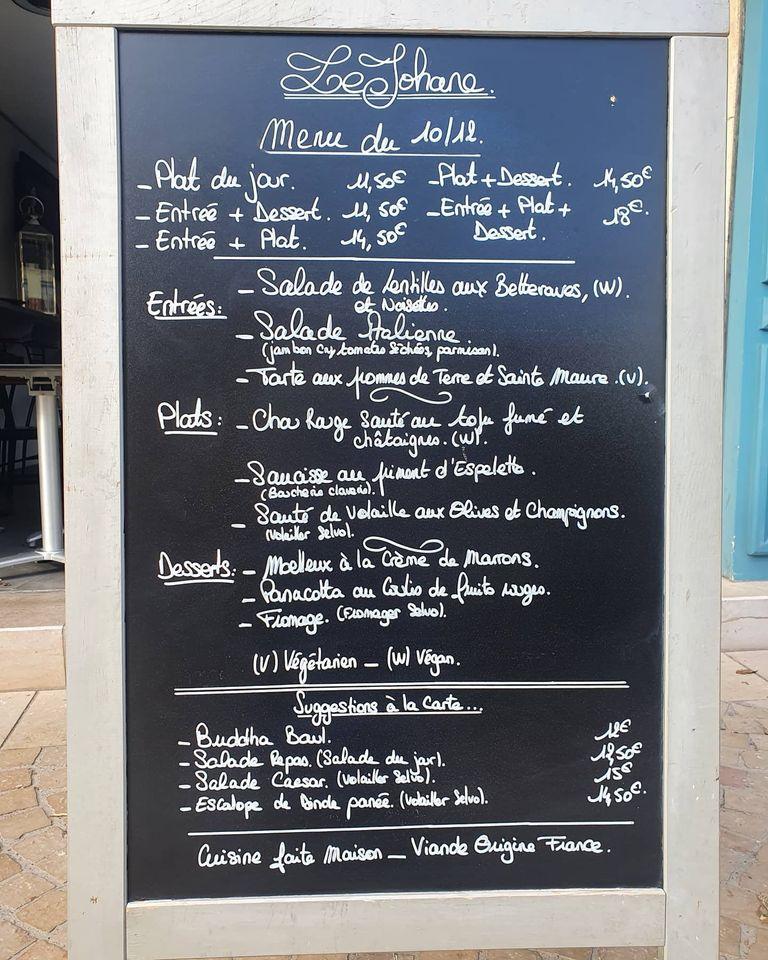 Le Johane.
Menu du 10/12.
- Plat du jour. 11,50€ - Plat + Dessert. 14,50€
- Entrée + Dessert. 11,50€ - Entrée + Plat + Dessert. 18€.
- Entrée + Plat. 14,50€
Entrées: - Salade de lentilles aux Betteraves, (W).
et Noisettes.
- Salade Italienne
(jambon Cru, tomates Séchées, parmesan).
- Tarte aux pommes de Terre et Sainte Maure. (V).
Plats: - Chou Rouge Sauté au tofu fumé et
châtaignes. (W).
- Saucisse au piment d'Espelette.
(Boucherie claverie).
- Sauté de Volaille aux Olives et Champignons.
(Volailler Selvo).
Desserts: - Moelleux à la Crème de Marrons.
- Panacotta au Coulis de fruits rouges.
- Fromage. (Fromager Selvo).
(V) Végétarien - (W) Végan.
Suggestions à la Carte...
- Buddha Bowl. 12€
- Salade Repas. (Salade du jour). 12,50€
- Salade Caesar. (Volailler Selvo). 15€
- Escalope de Dinde panée. (Volailler Selvo). 14,50€.
Cuisine faite Maison - Viande Origine France.